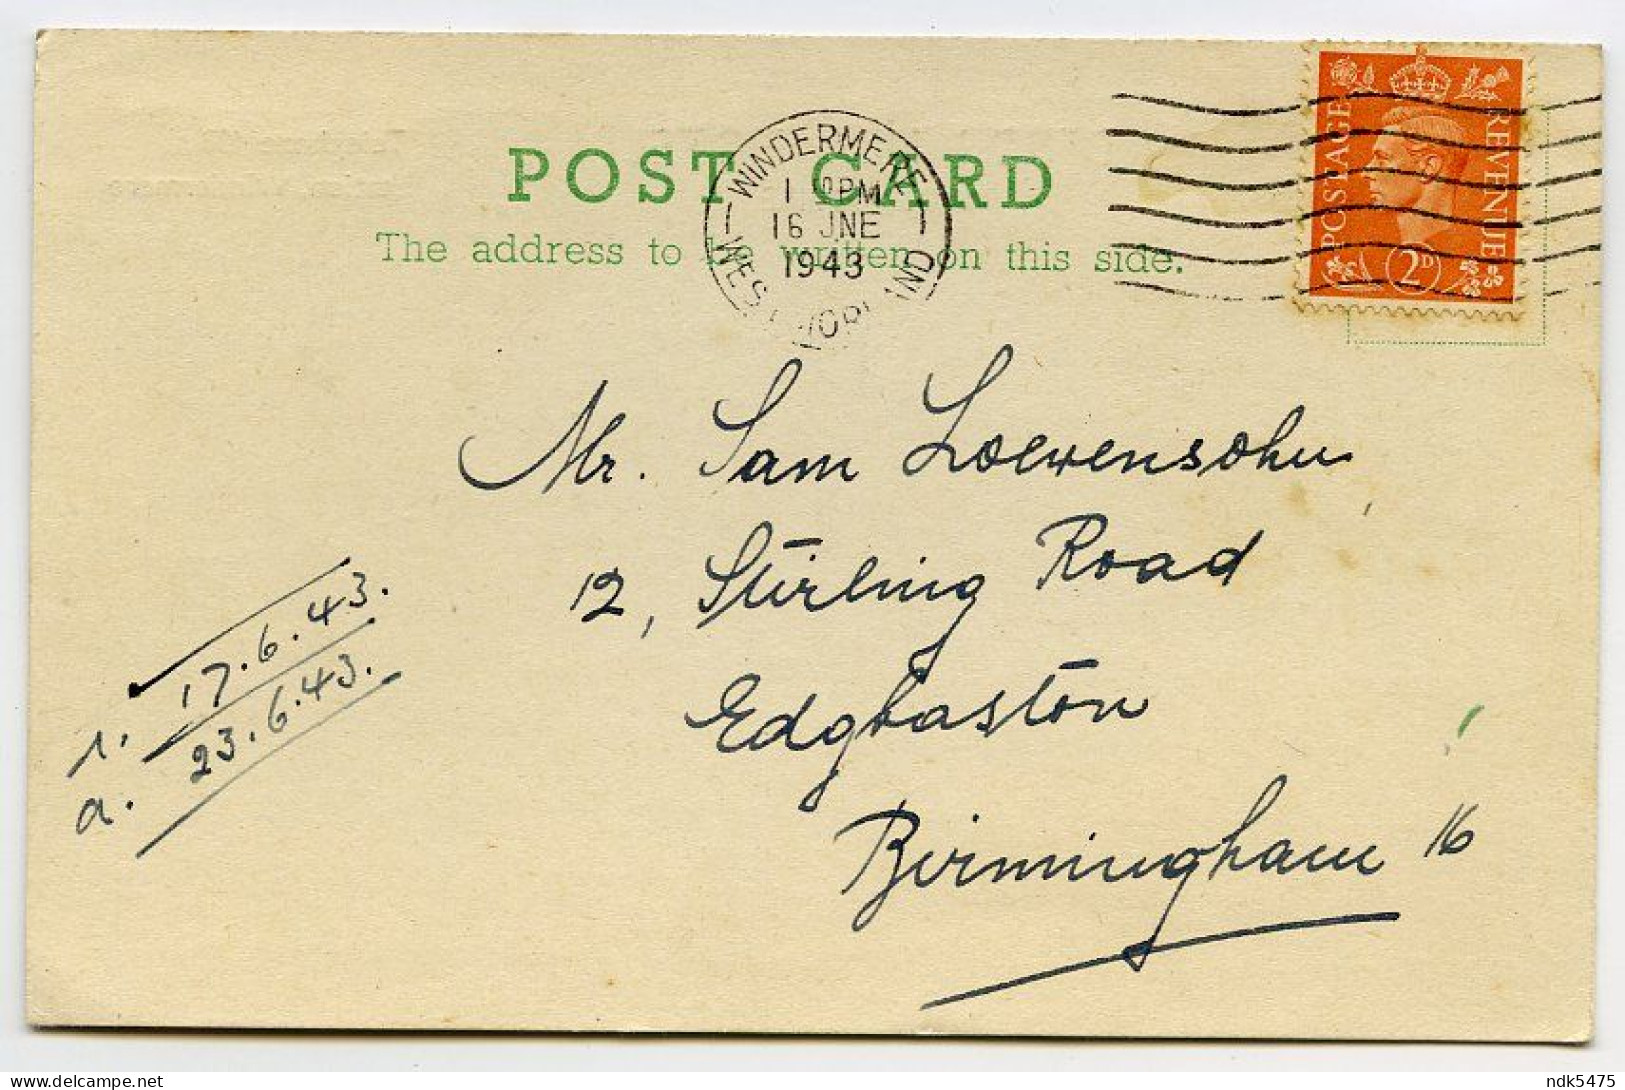 POST CARD
The address to be written on this side.
WINDERMERE
PM
16 JNE
1943
POSTAGE REVENUE
2D
Mr. Sam Loewensohn
12, Stirling Road
Edgbaston
Birmingham 16
r. 17.6.43.
a. 23.6.43.
delcampe.net
ndk5475